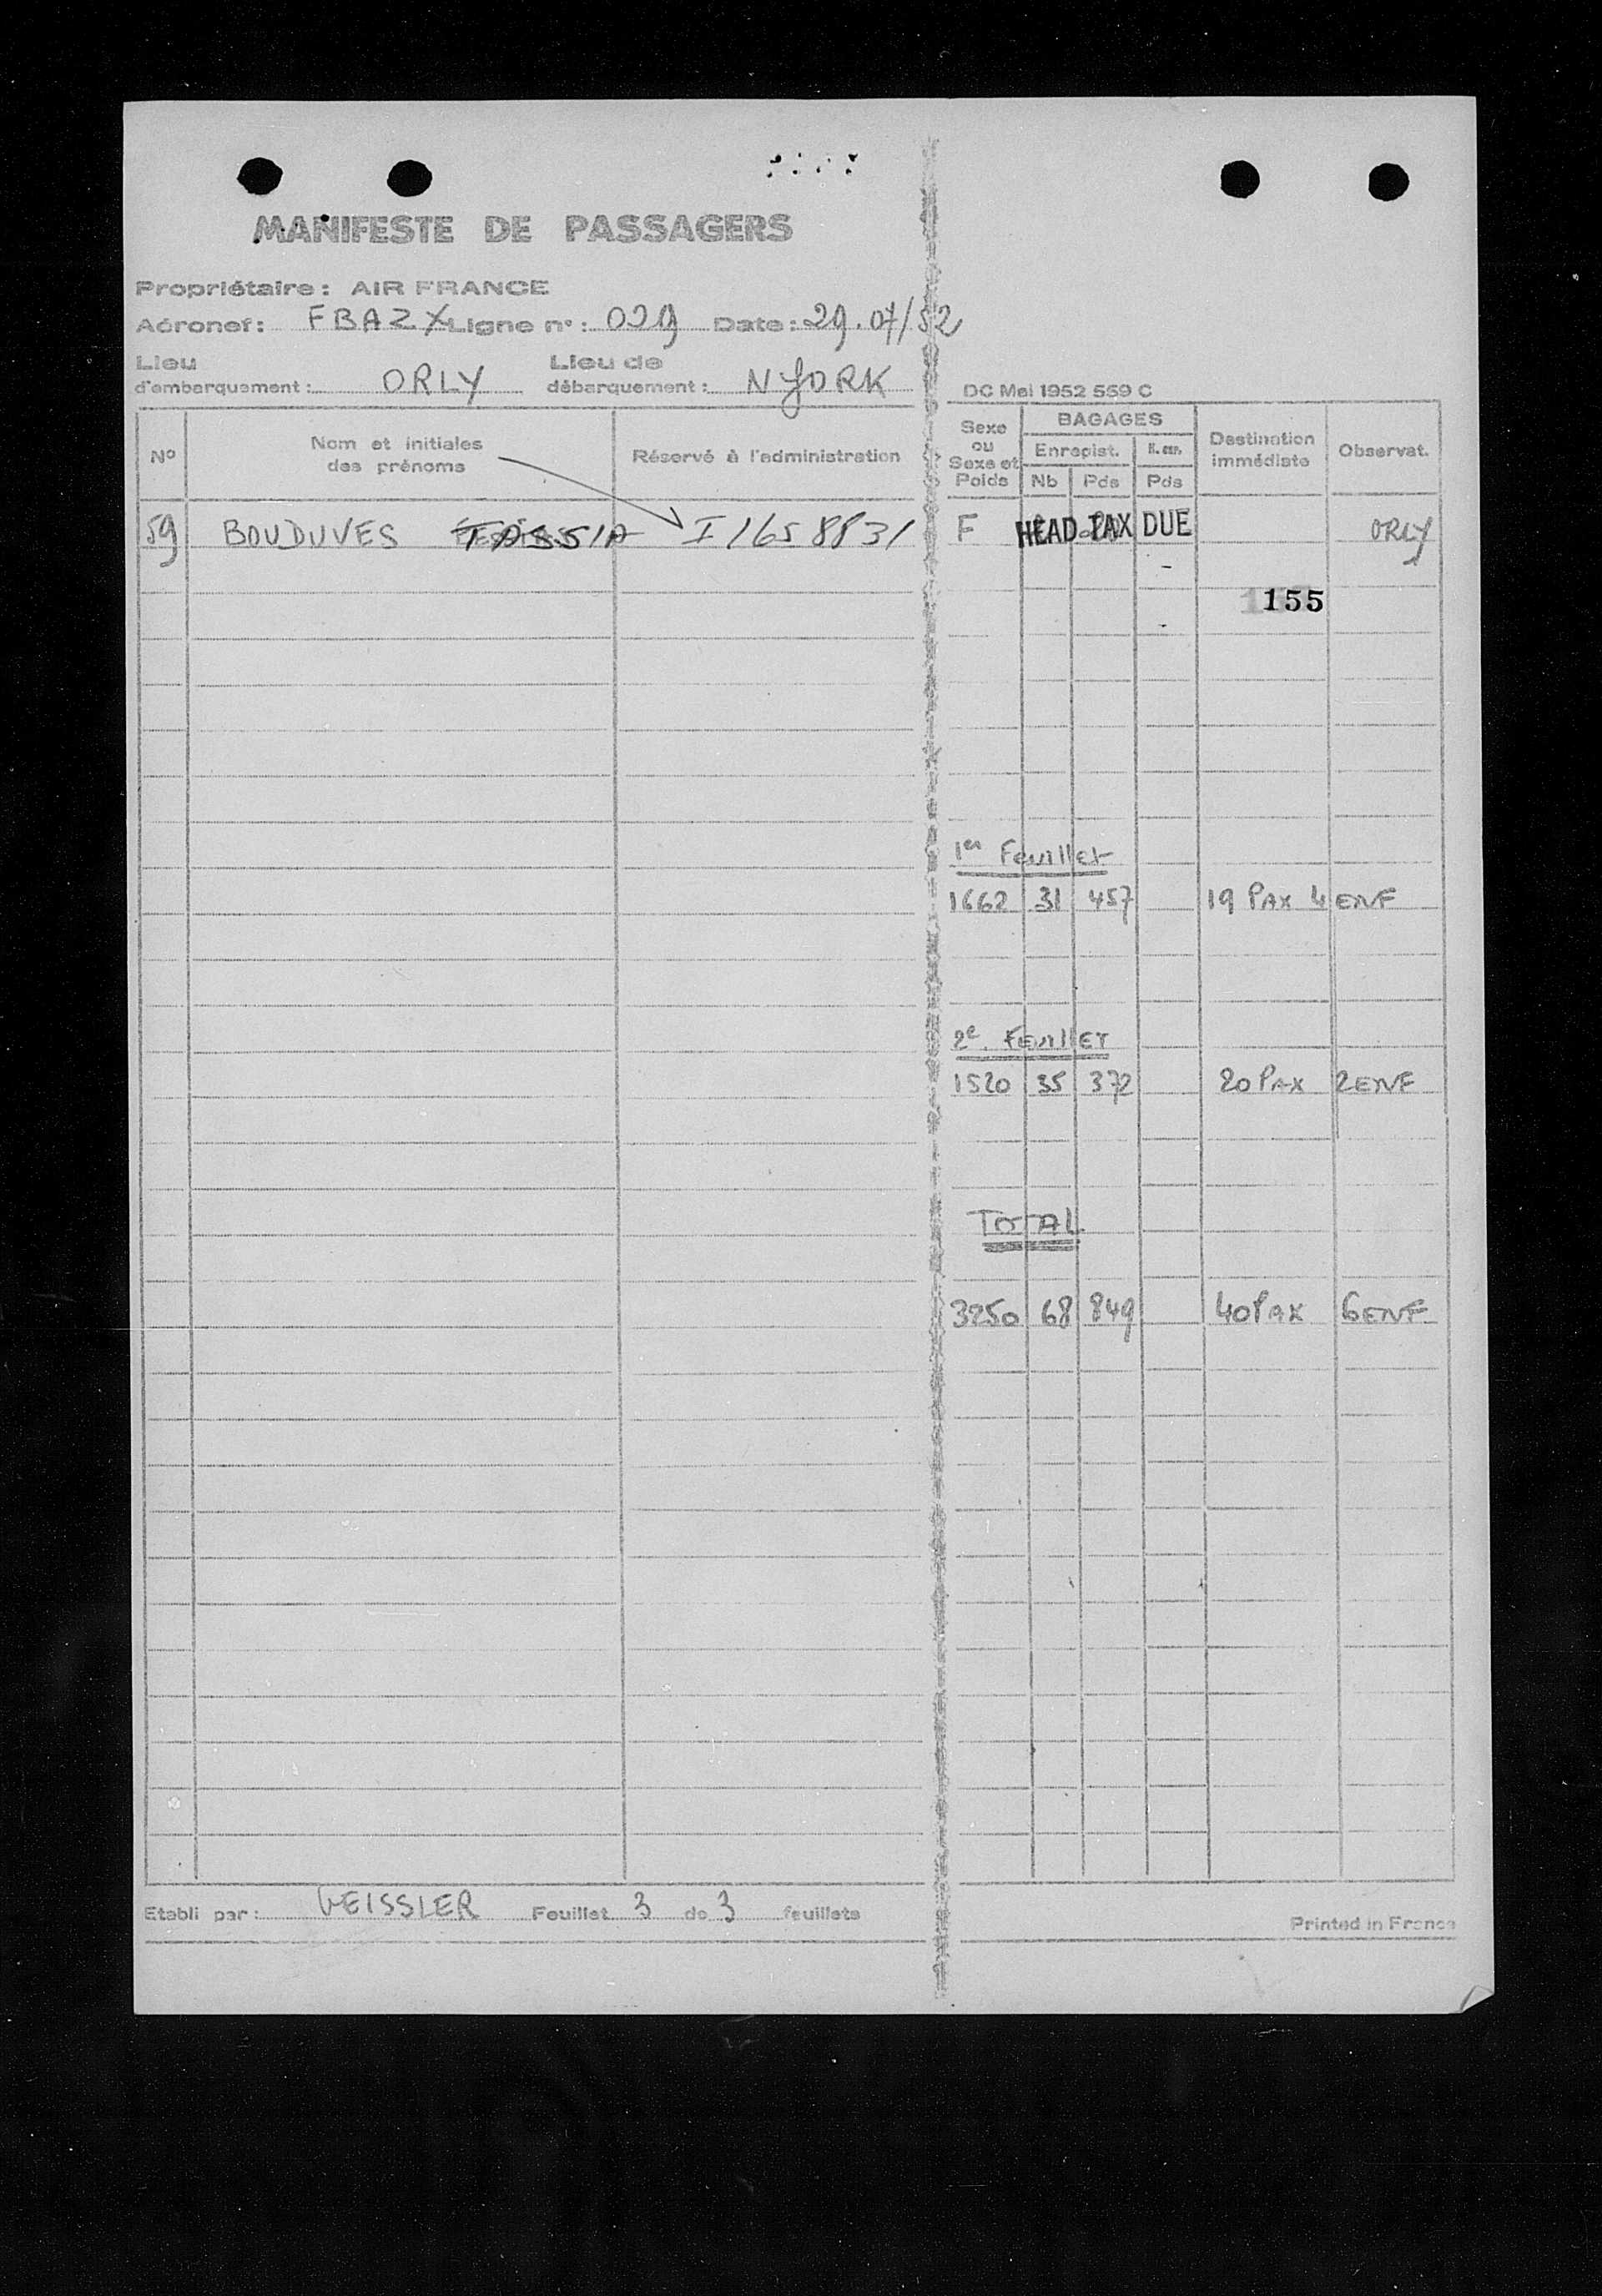 MANIFESTE DE PASSAGERS
Propriétaire : AIR FRANCE
Aéronef : FBAZX Ligne n° : 029 Date : 29.07/52
Lieu d'embarquement : ORLY Lieu de débarquement : N YORK
DC Mai 1952 559 C
Nº
Nom et initiales des prénoms
Réservé à l'administration
Sexe ou Sexe et Poids
BAGAGES
Enregist.
Nb Pds Pds
Destination immédiate
Observat.
59 BOUDUVES TASSIA I 1658831 F HEAD TAX DUE ORLY
155
1er Feuillet
1662 31 457 19 PAX 4 ENF
2e FEUILLET
1520 35 372 20 PAX 2 ENF
TOTAL
3250 68 849 40 PAX 6 ENF
Etabli par : GEISSLER Feuillet 3 de 3 feuillets
Printed in France